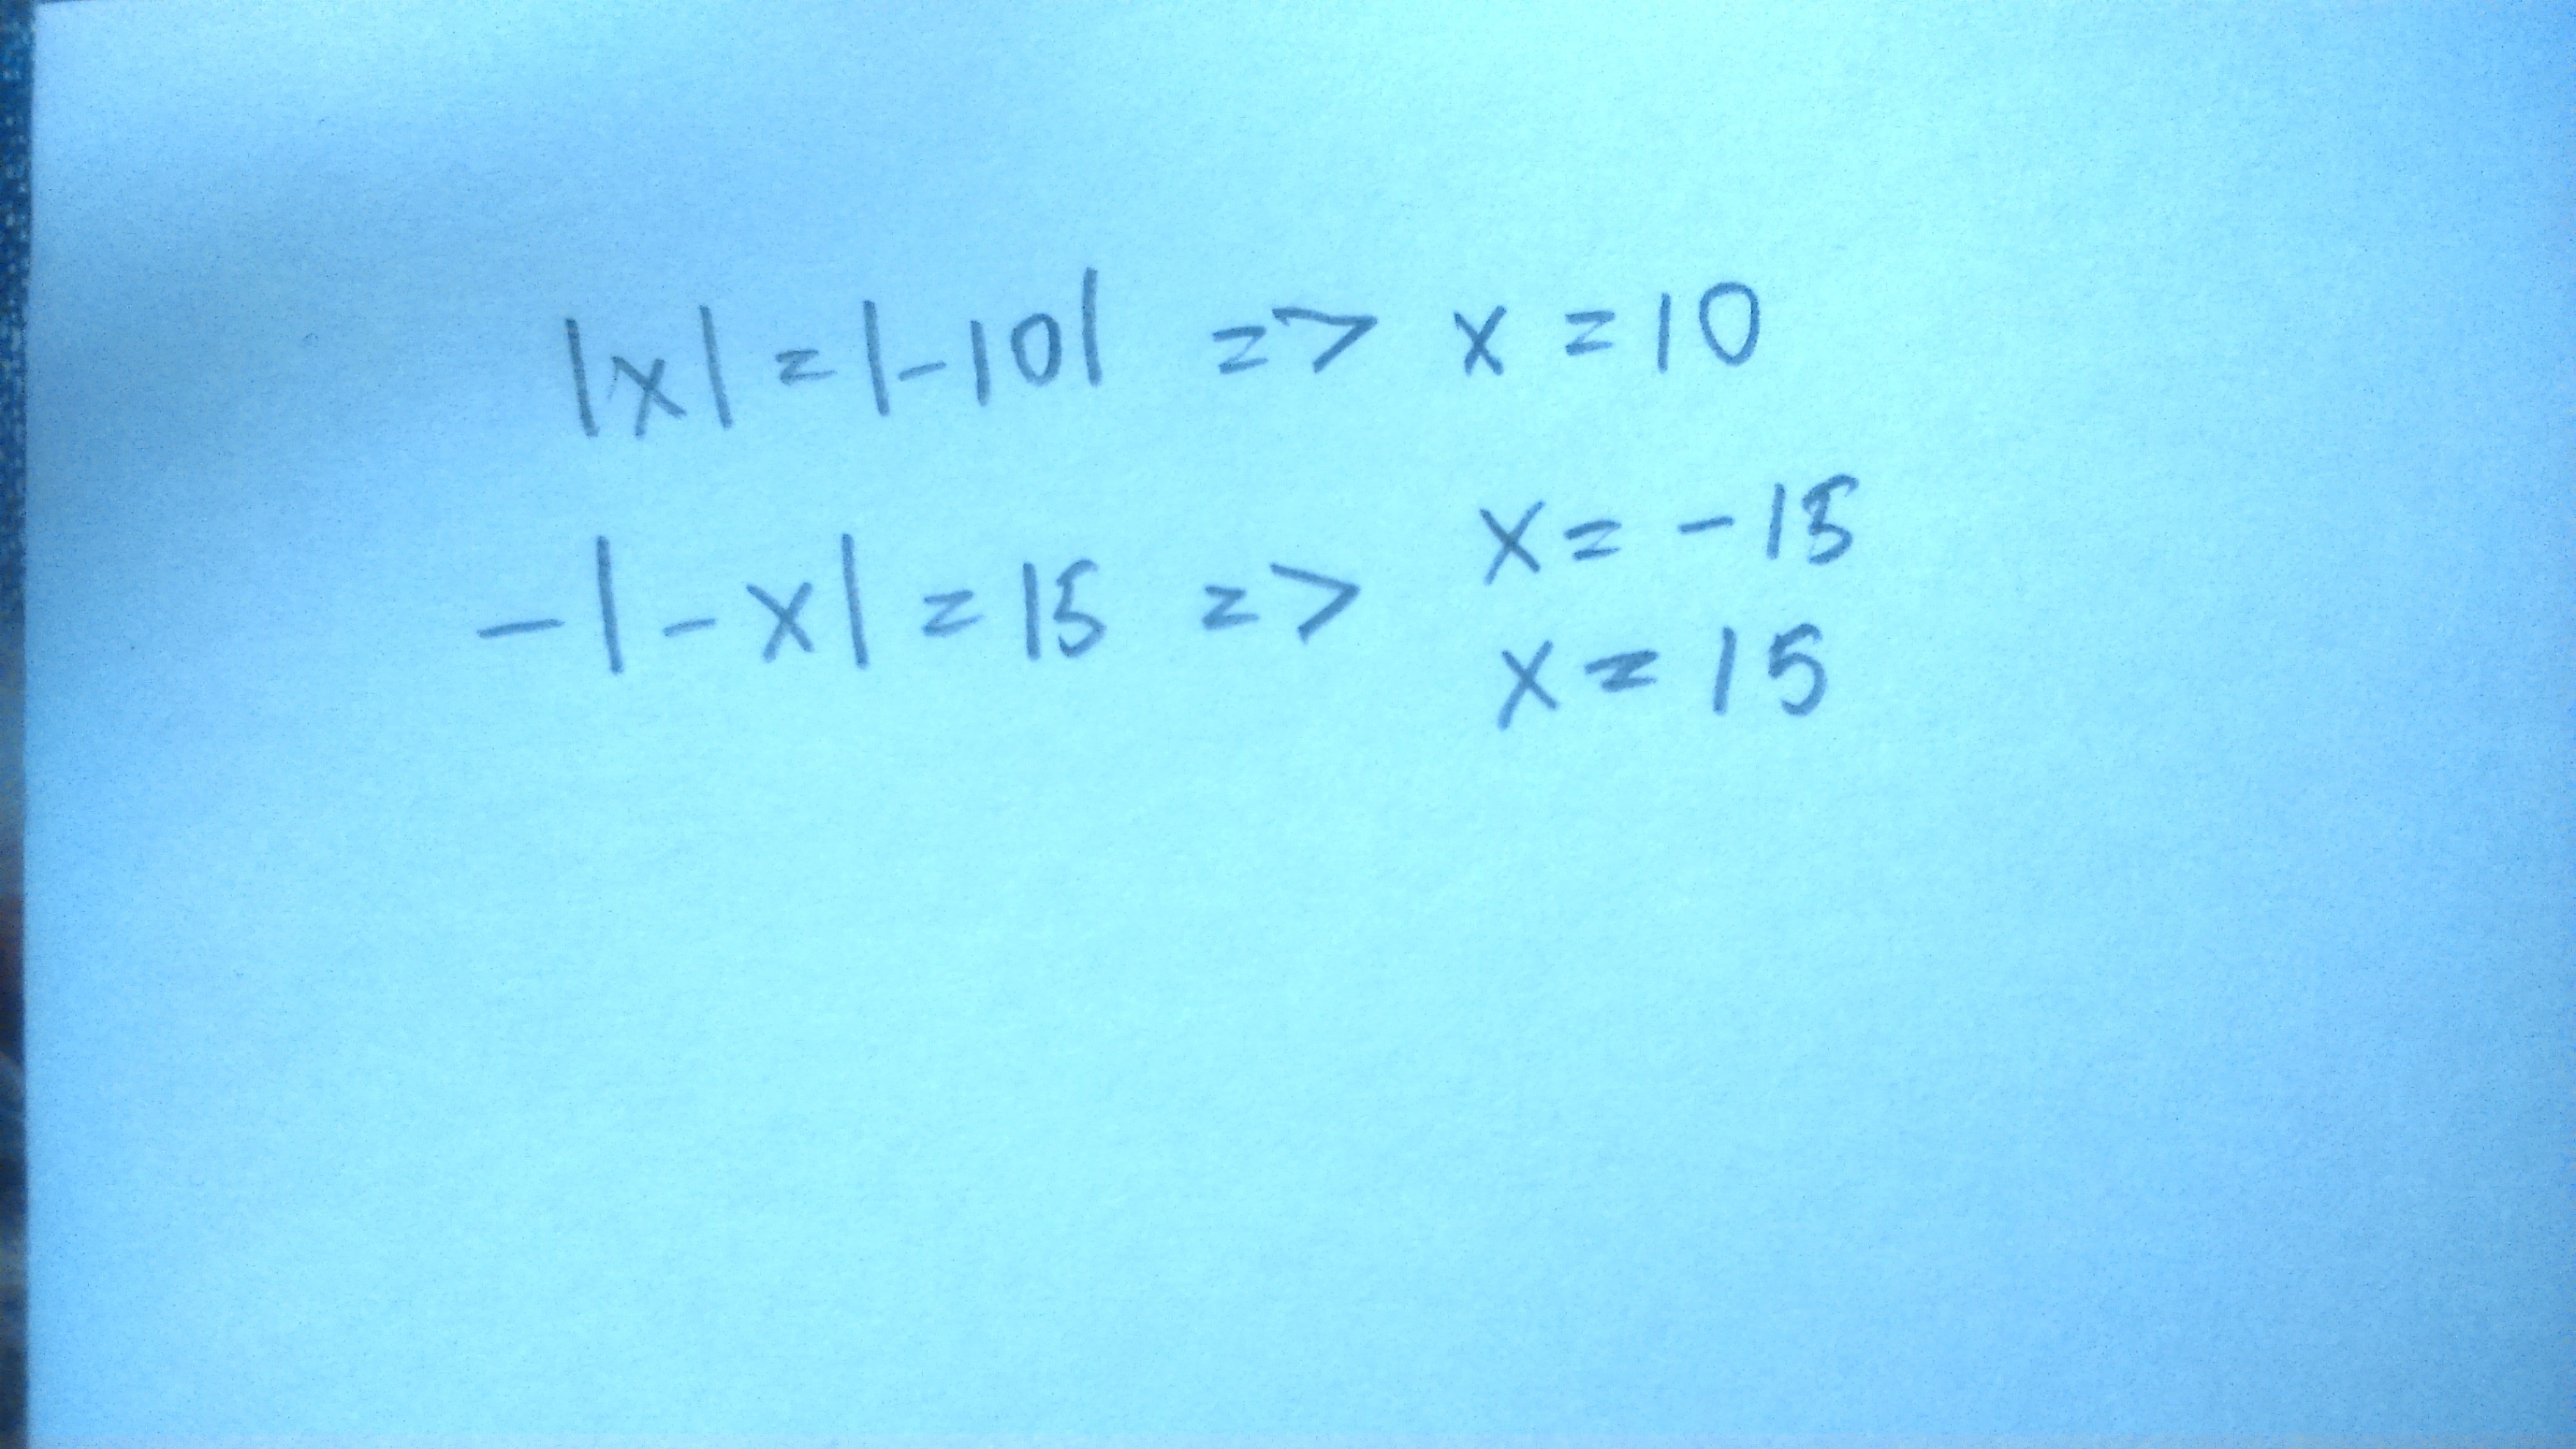 |x| = |-10| => x = 10
x = -15
-|-x| = 15 =>
x = 15